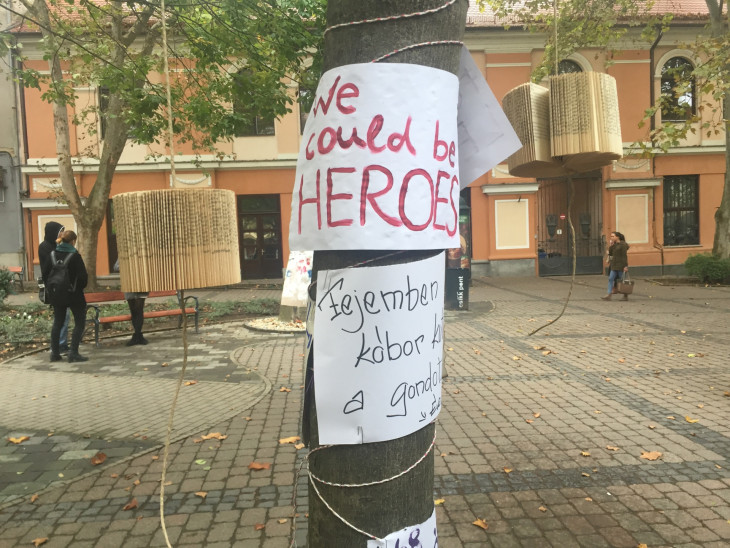 We
could be
HEROES
Fejemben
kóbor
a gondol